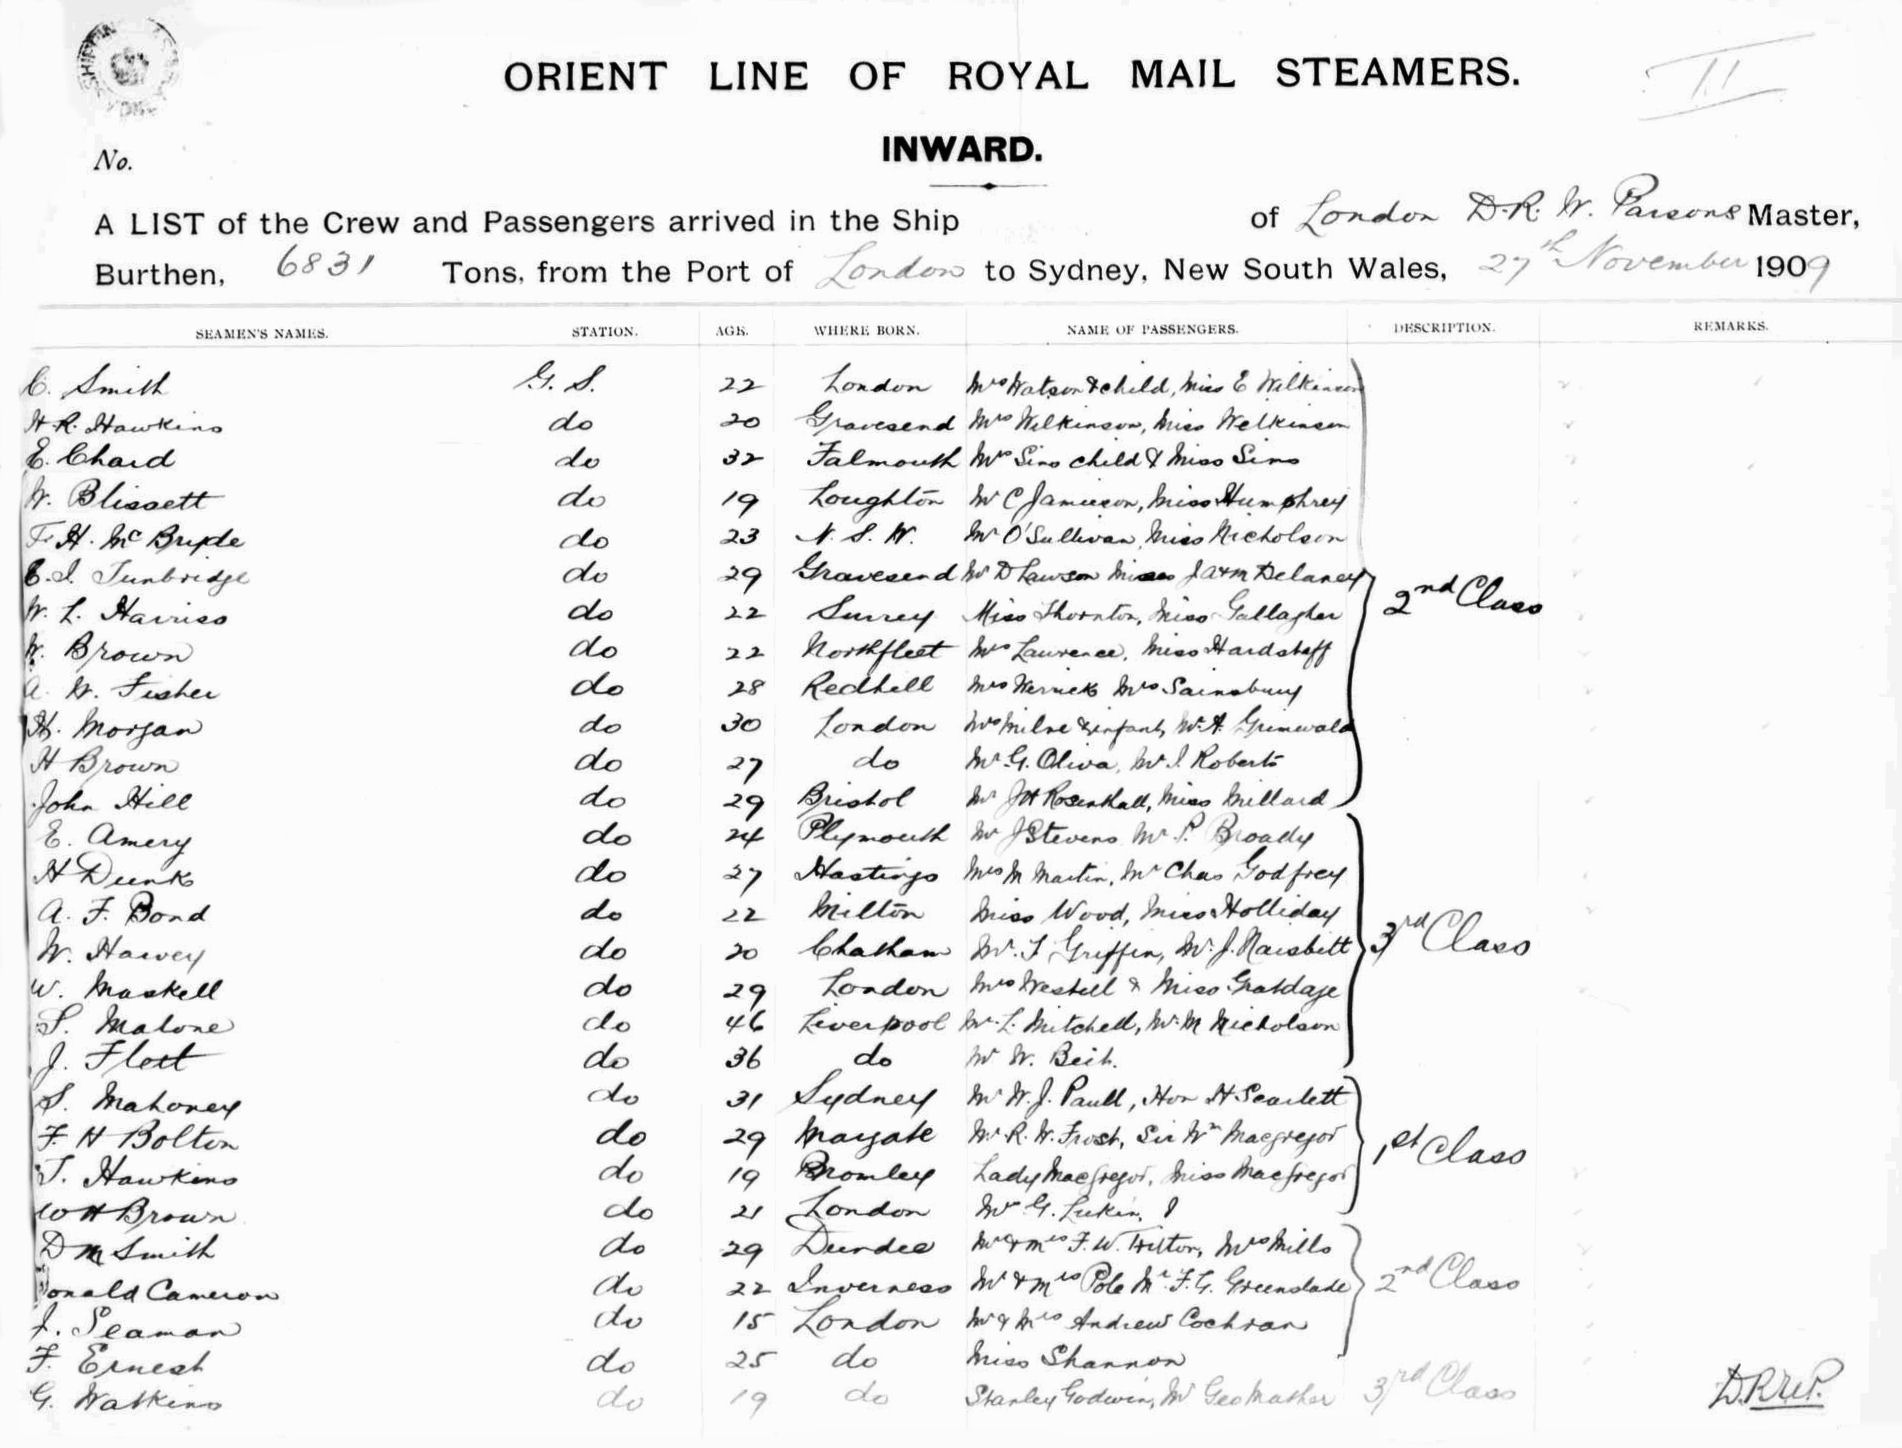 II
ORIENT LINE OF ROYAL MAIL STEAMERS.
INWARD.
No.
A LIST of the Crew and Passengers arrived in the Ship of London D.R.W. Parsons Master,
Burthen, 6831 Tons, from the Port of London to Sydney, New South Wales, 27th November 1909
SEAMEN'S NAMES. STATION. AGE. WHERE BORN. NAME OF PASSENGERS. DESCRIPTION. REMARKS.
C. Smith G. S. 22 London Mrs Watson & child, Miss E Wilkinson
H R. Hawkins do 20 Gravesend Mrs Wilkinson, Miss Wilkinson
E. Chard do 32 Falmouth Mrs Sims child & Miss Sims
W. Blissett do 19 Loughton Mr C Jamieson, Miss Humphrey
F. H. McBryde do 23 N. S. W. Mr O'Sullivan, Miss Nicholson
E. I. Tunbridge do 29 Gravesend Mr D Lawson Misses J & M Delaney
2nd Class
W. L. Harriss do 22 Surrey Miss Thornton, Miss Gallagher
W. Brown do 22 Northfleet Mrs Lawrence, Miss Hardstaff
A. W. Fisher do 28 Redhill Mrs Mrs Sainsbury
H. Morgan do 30 London Mrs Milne & infant, Mr A. Grunwald
H Brown do 27 do Mr G. Oliva, Mr I. Roberts
John Hill do 29 Bristol Mr J H Rosenthall, Miss Millard
E. Amery do 24 Plymouth Mr J Stevens Mr P. Broady
H Dunk do 27 Hastings Mrs M Martin, Mr Chas Godfrey
A. F. Bond do 22 Milton Miss Wood, Miss Holliday
W. Harvey do 20 Chatham Mr. T Griffin, Mr. J. Naisbitt 3rd Class
W. Maskell do 29 London Mrs & Miss
S. Malone do 46 Liverpool Mr. L. Mitchell, Mr. M Nicholson
J. Flett do 36 do Mr W.
S. Mahoney do 31 Sydney Mr W. J. Paull, Hon H Scarlett
F. H Bolton do 29 Margate Mr. R. W. Frost, Sir Wm Macgregor
1st Class
T. Hawkins do 19 Bromley Lady MacGregor, Miss MacGregor
W H Brown do 21 London Mr G. Lukin,
D M Smith do 29 Dundee Mr & Mrs F. W. Mrs Mills
Donald Cameron do 22 Inverness Mr & Mrs Pole Mr. F. G. Greenslade 2nd Class
J. Seaman do 15 London Mr & Mrs Andrew Cochran
F. Ernest do 25 do Miss Shannon
G. Watkins do 19 do Stanley Godwin, Mr Geo Mather 3rd Class
D.R.W.P.